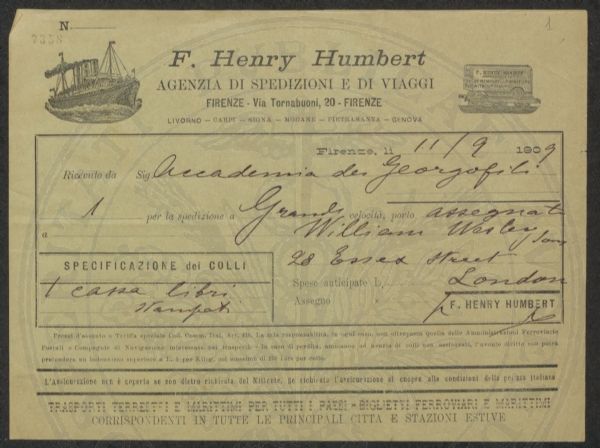 N.
7358
1
F. Henry Humbert
AGENZIA DI SPEDIZIONI E DI VIAGGI
FIRENZE - Via Tornabuoni, 20 - FIRENZE
LIVORNO — CARPI — SIGNA — MODANE — PIETRASANTA — GENOVA
F. HENRY HUMBERT
Firenze, li 11/9 1909
Ricevuto da Sig. Accademia dei Georgofili
1 per la spedizione a Grande velocità, porto assegnato
a William Wesley / Sons
28 Essex Street
SPECIFICAZIONE dei COLLI
London
1 cassa libri
stampati
Spese anticipate L.
Assegno
p. F. HENRY HUMBERT
Prezzi d'assunto o Tariffa speciale Cod. Comm. Ital. Art. 416. La mia responsabilità, in ogni caso, non oltrepassa quella delle Amministrazioni Ferroviarie
Postali o Compagnie di Navigazione interessate nei trasporti — In caso di perdita, ammanco od avaria di colli non assicurati, l'avente diritto non potrà
pretendere un indennizzo superiore a L. per Kilog. col massimo di lire per collo.
L'Assicurazione non è coperta se non dietro richiesta del Mittente. Se richiesta l'assicurazione si esegue alla condizioni della polizza italiana
TRASPORTI TERRESTRI E MARITTIMI PER TUTTI I PAESI - BIGLIETTI FERROVIARI E MARITTIMI
CORRISPONDENTI IN TUTTE LE PRINCIPALI CITTÀ E STAZIONI ESTIVE